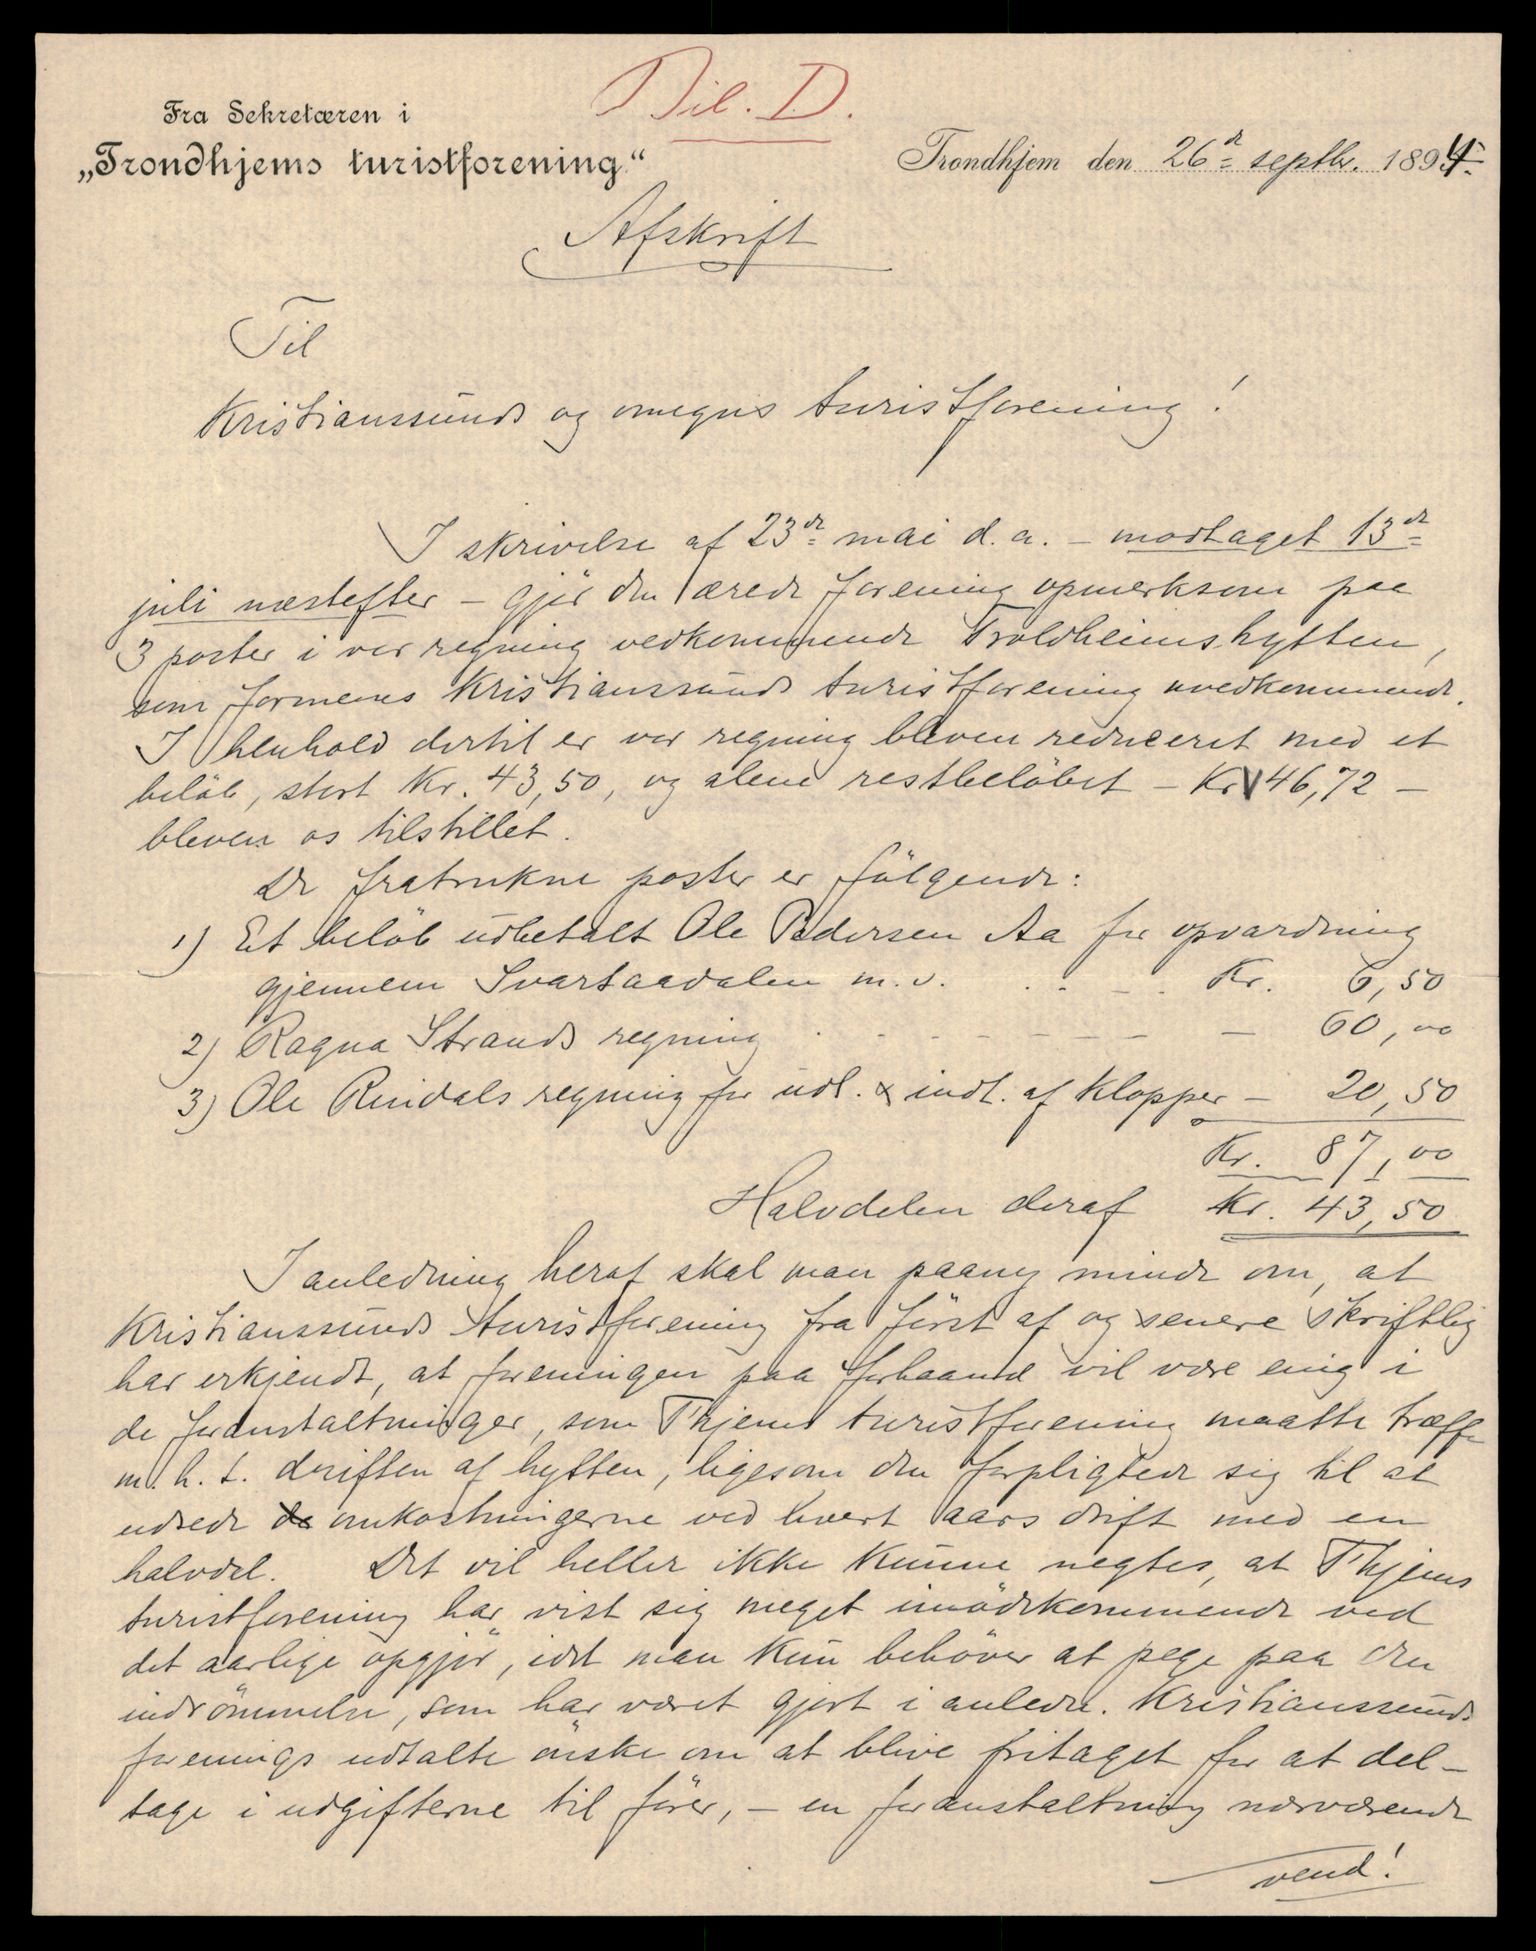 Bil. D.
Fra Sekretæren i
„Trondhjems turistforening“
Trondhjem den 26de septbr. 1894.
Afskrift
Til
Kristianssunds og omegns turistforening!
I skrivelse af 23de mai d. a. – modtaget 13de
juli næstefter – gjör den ærede forening opmerksom paa
3 poster i vor regning vedkommende Troldheimshytten,
som formenes Kristianssunds turistforening uvedkommende.
I henhold dertil er vor regning bleven reduceret med et
beløb, stort Kr. 43,50, og alene restbeløbet – Kr. 146,72 –
bleven os tilstillet.
De fratrukne poster er fölgende:
1) Et beløb udbetalt Ole Pedersen Aa for opvardning
gjennem Svartaadalen m. v. . . . . Kr. 6,50
2) Ragna Strands regning . - - - - - - 60,00
3) Ole Rindals regning for udl. & indl. af klopper – 20,50
Kr. 87,00
Halvdelen deraf Kr. 43,50
I anledning heraf skal man paany minde om, at
Kristianssunds turistforening fra först af og senere skriftlig
har erkjendt, at foreningen paa forhaand vil være enig i
de foranstaltninger, som Thjems turistforening maatte træffe
m. h. t. driften af hytten, ligesom den forpligtede sig til at
udrede de omkostningerne ved hvert aars drift med en
halvdel. Det vil heller ikke kunne negtes, at Thjems
turistforening har vist sig meget imödekommende ved
det aarlige opgjör, idet man kun behöver at pege paa den
indrömmelse, som har været gjort i anledn. Kristianssunds
forenings udtalte önske om at blive fritaget for at del-
tage i udgifterne til förer, – en foranstaltning nærværende
vend!